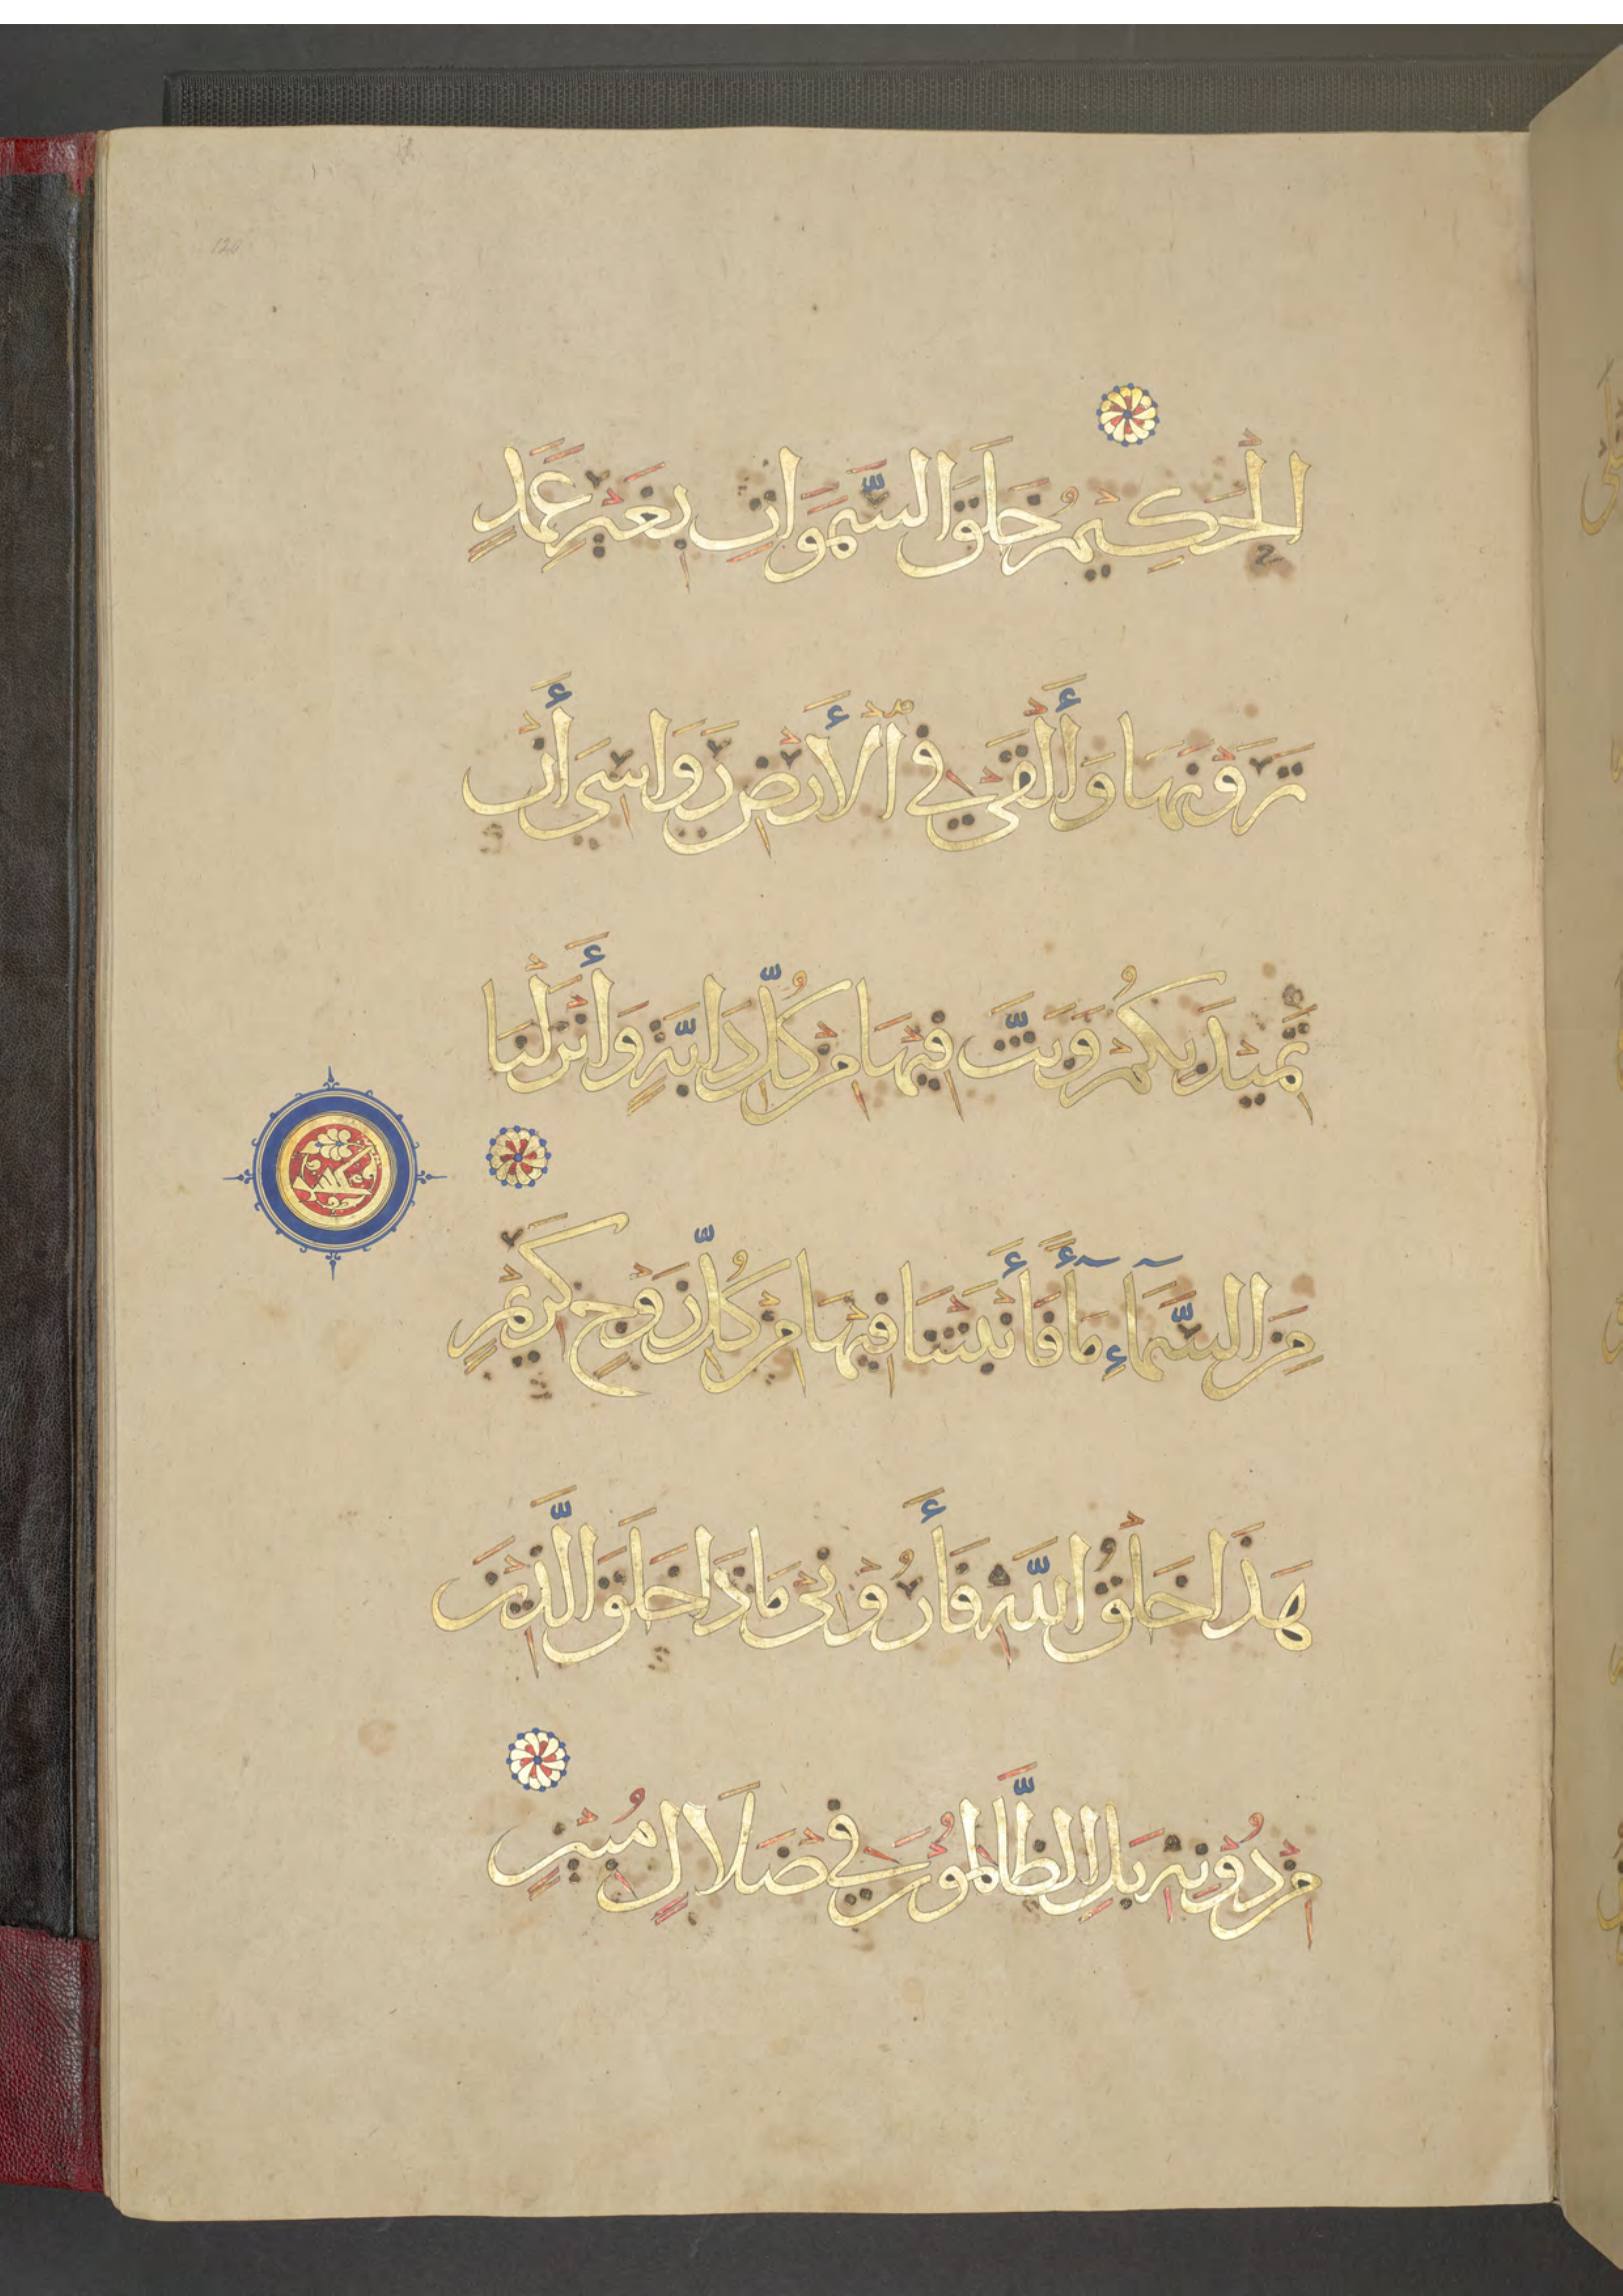 126
الْحَكِيْمُ خَلَقَ السَّمَوَاتِ بِغَيْرِ عَمَدٍ
تَرَوْنَهَا وَأَلْقَى فِي الْأَرْضِ رَوَاسِيَ أَنْ
تَمِيْدَ بِكُمْ وَبَثَّ فِيْهَا مِنْ كُلِّ دَابَّةٍ وَأَنْزَلْنَا
مِنَ السَّمَآءِ مَآءً فَأَنْبَتْنَا فِيْهَا مِنْ كُلِّ زَوْجٍ كَرِيْمٍ
هَذَا خَلْقُ اللَّهِ فَأَرُوْنِيْ مَاذَا خَلَقَ الَّذِيْنَ
مِنْ دُوْنِهِ بَلِ الظَّالِمُوْنَ فِيْ ضَلَالٍ مُبِيْنٍ